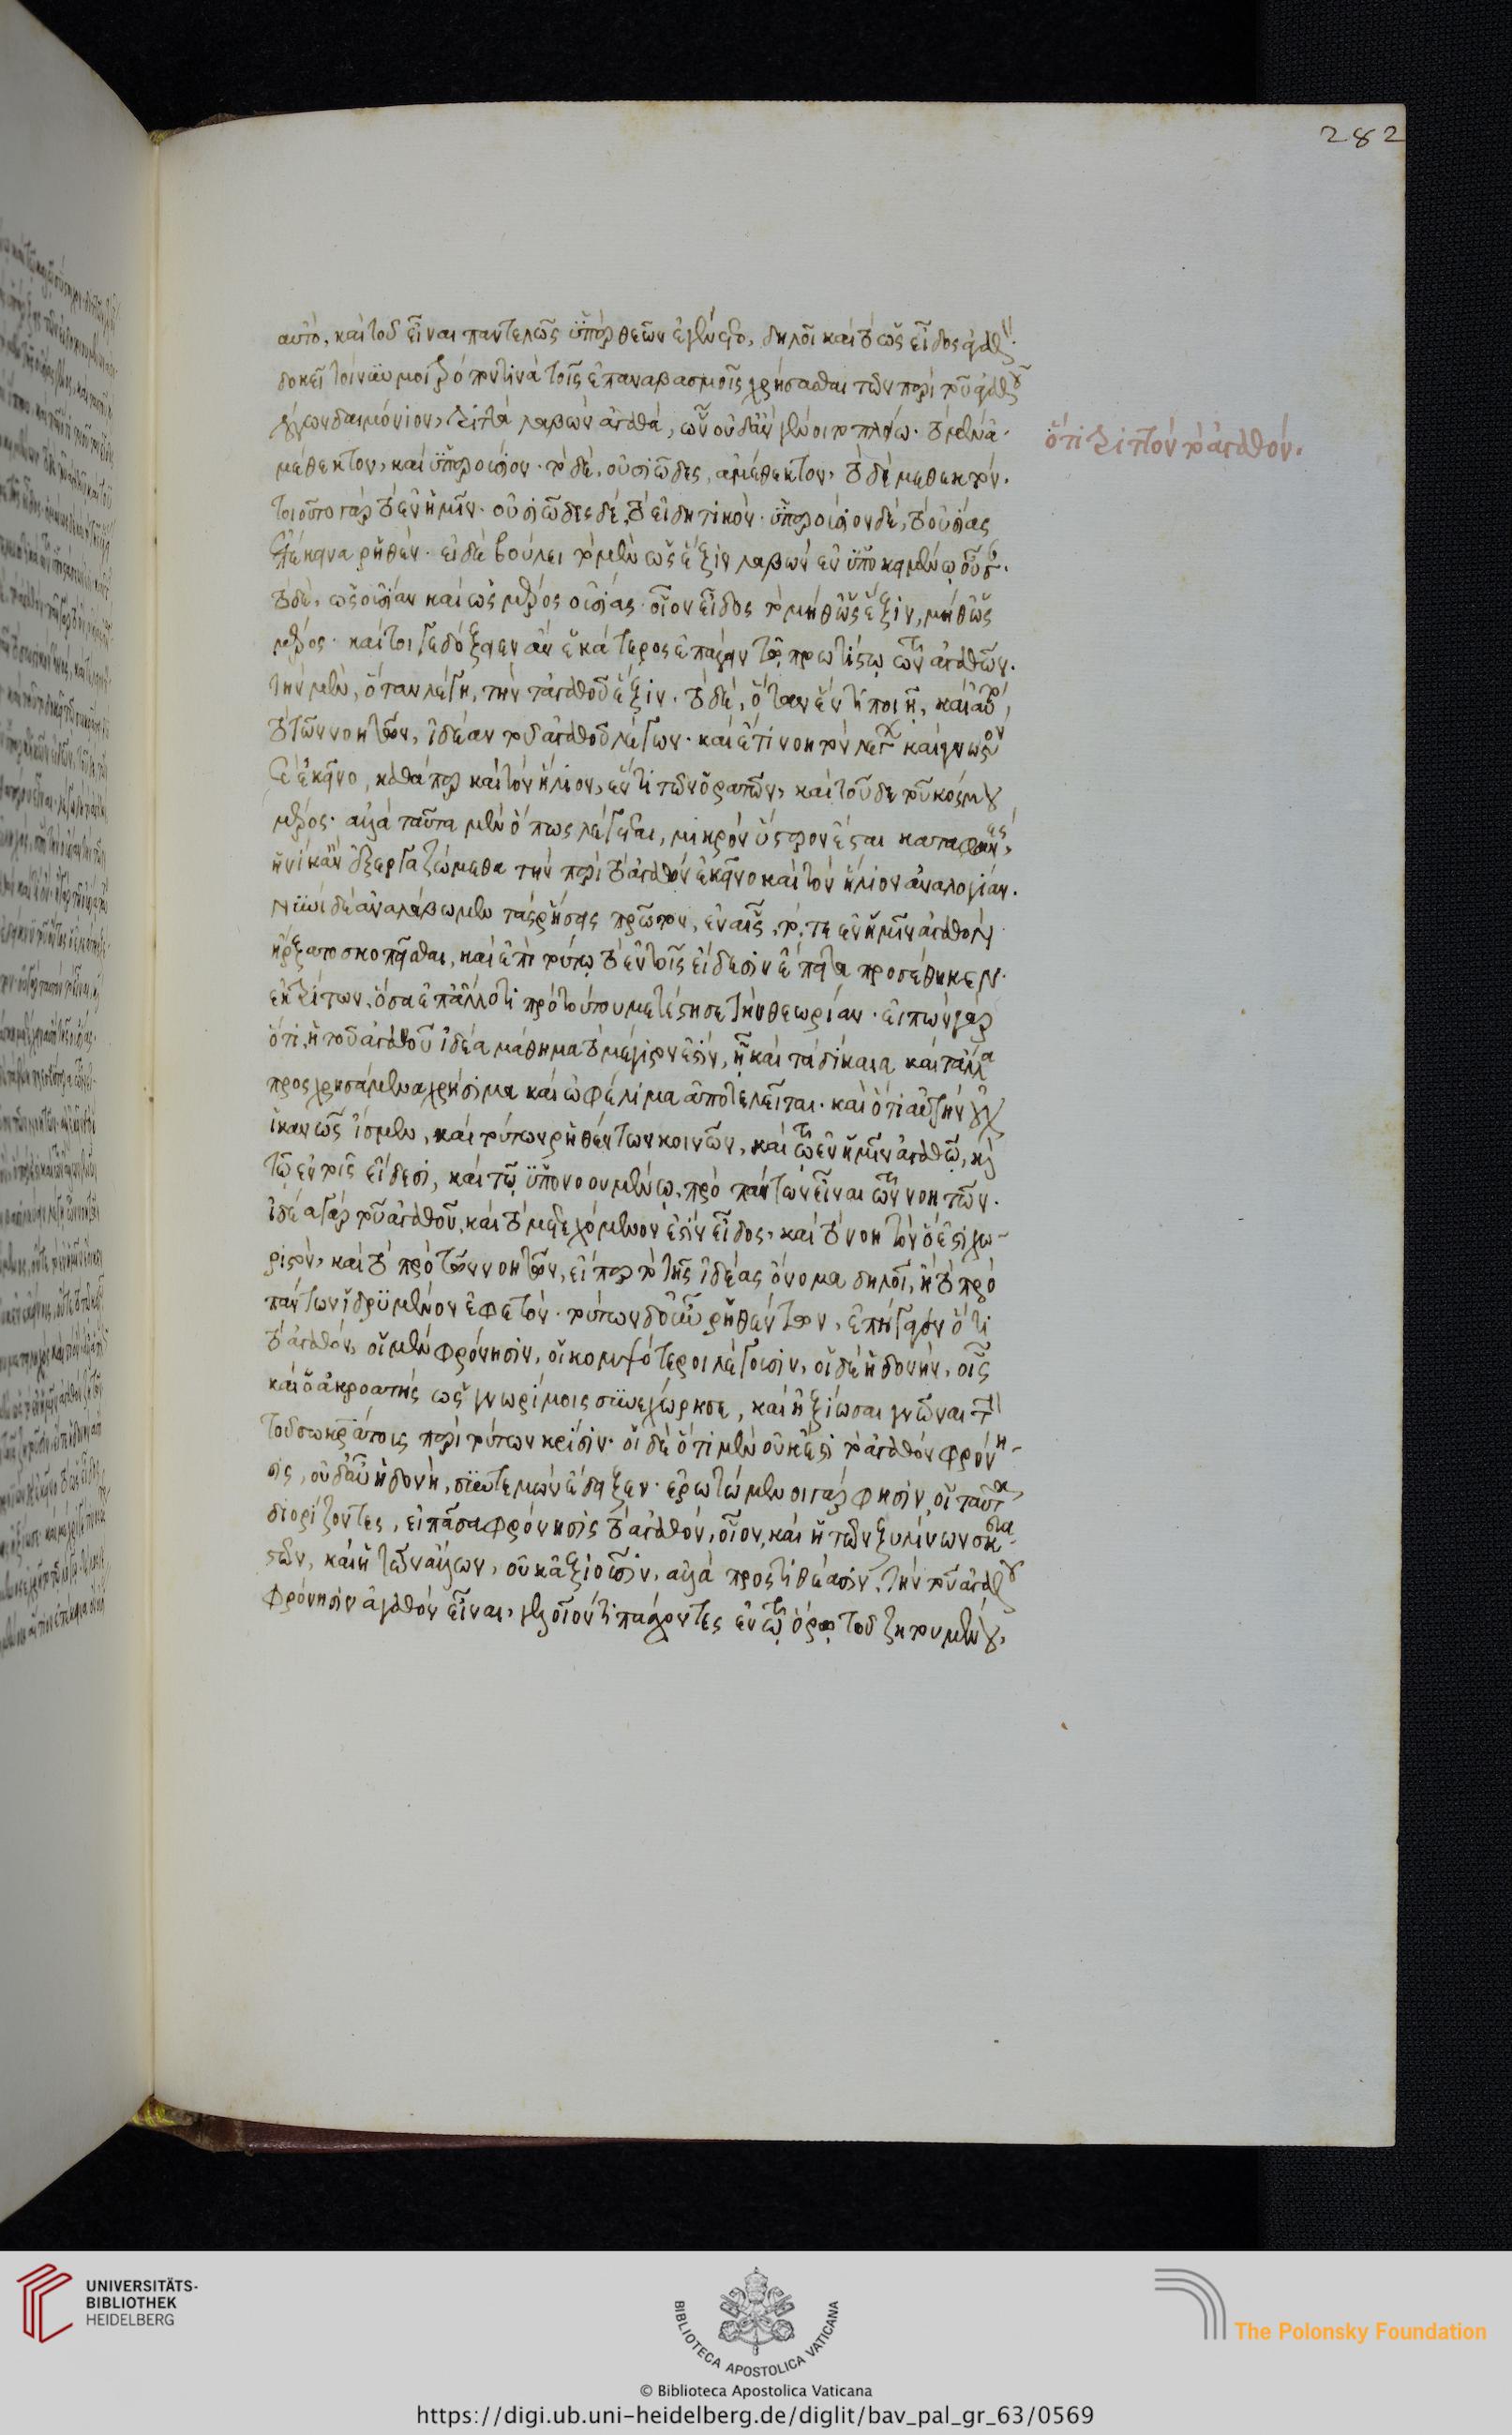 αὐτὸ, καὶ τοῦ εἶναι παντελῶς ὑπὲρ θεῶν ἐγένετο, δηλοῖ καὶ τὸ ὡς εἶδος
δοκεῖ τοίνυν μοι τοῖς ἐπαναβασμοῖς χρήσασθαι τῶν περὶ τοῦ ἀγαθοῦ
λόγων δαιμόνιον, τριττὰ λαβὼν ἀγαθά, ὧν οὐδὲν ἂν γένοιτο πλέον. τὸ μὲν ἀ-
μέθεκτον, καὶ ὑπερούσιον. τὸ δὲ, οὐσιῶδες, ἀμέθεκτον, τὸ δὲ μεθεκτόν.
τοιοῦτο γὰρ τὸ ἐν ἡμῖν. οὐσιῶδες δέ, τὸ εἰδητικόν. ὑπερούσιον δέ, τὸ οὐσίας
ἐπέκεινα ῥηθέν. εἰ δὲ βούλει τὸ μὲν ὡς ἕξιν λαβὼν ἐν ὑποκειμένῳ
τὸ δὲ, ὡς οὐσίαν καὶ ὡς μέρος οὐσίας. οἷον εἶδος τὸ μήθ' ὡς ἕξιν, μήθ' ὡς
μέρος. καίτοι γε δόξειεν ἂν ἑκάτερος ἐπάγειν τῷ πρωτίστῳ τῶν ἀγαθῶν.
τὴν μὲν, ὅταν λέγῃ, τὴν τἀγαθοῦ ἕξιν. τὸ δὲ, ὅταν ἕν τι ποιῇ, καὶ αὐτὸ,
τὸ τῶν νοητῶν, ἰδέαν τοῦ ἀγαθοῦ λέγων. καὶ ἔτι νοητὸν λέγει καὶ γνωστὸν
κἀκεῖνο, καθάπερ καὶ τὸν ἥλιον, ἕν τι τῶν ὁρατῶν, καὶ τοῦδε τοῦ κόσμου
μέρος. ἀλλὰ ταῦτα μὲν ὅπως λέγεται, μικρὸν ὕστερον ἔσται καταφανές,
ἡνίκ' ἂν ἐξεργαζώμεθα τὴν περὶ τὸ ἀγαθὸν ἐκεῖνο καὶ τὸν ἥλιον ἀναλογίαν.
νυνὶ δὲ ἀναλάβωμεν τὰς ῥήσεις πρῶτον, ἐν αἷς, τό, τε ἐν ἡμῖν ἀγαθὸν
ἤρξατο σκοπεῖσθαι, καὶ ἐπὶ τούτῳ τὸ ἐν τοῖς εἴδεσιν ἔπειτα προσέθηκεν.
ἐκ τρίτων, ὅσα ἐπ' ἄλλο τι πρὸ τούτου μετέστησε τὴν θεωρίαν. εἰπὼν γὰρ
ὅτι ἡ τοῦ ἀγαθοῦ ἰδέα μάθημα τὸ μέγιστόν ἐστιν, ᾗ καὶ τὰ δίκαια καὶ τἄλλα
προσχρησάμενα χρήσιμα καὶ ὠφέλιμα ἀποτελεῖται. καὶ ὅτι αὐτὴν οὐχ
ἱκανῶς ἴσμεν, καὶ τούτων ῥηθέντων κοινῶν, καὶ τῷ ἐν ἡμῖν ἀγαθῷ, καὶ
τῷ ἐν τοῖς εἴδεσι, καὶ τῷ ὑπονοουμένῳ, πρὸ πάντων εἶναι τῶν νοητῶν.
ἰδέα γὰρ τοῦ ἀγαθοῦ, καὶ τὸ μετεχόμενον ἐστὶν εἶδος, καὶ τὸ νοητὸν ὅ ἐστι χω-
ριστόν, καὶ τὸ πρὸ τῶν νοητῶν, εἴπερ τὸ τῆς ἰδέας ὄνομα δηλοῖ, ἢ τὸ πρὸ
πάντων ἱδρυμένον ἐφετόν. τούτων δ' οὖν ῥηθέντων, ἐπήγαγεν ὅτι
τὸ ἀγαθὸν, οἱ μὲν φρόνησιν, οἱ κομψότεροι λέγουσιν, οἱ δὲ ἡδονὴν, οἷς
καὶ ὁ ἀκροατὴς ὡς γνωρίμοις συνεχώρησε, καὶ ἠξίωσαι γνῶναι τὴν
τοῦ σωκράτους περὶ τούτων κρίσιν. ὁ δὲ ὅτι μὲν οὐκ ἔστι τὸ ἀγαθὸν φρόνη-
σις, οὐδ' αὖ ἡδονὴ, συντεμὼν ἔδειξεν. ἐρωτώμενοι γάρ φησιν οἱ ταῦτα
διορίζοντες, εἰ πᾶσα φρόνησις τὸ ἀγαθόν, οἷον, καὶ ἡ τῶν ξυλίνων σκευα-
στῶν, καὶ ἡ τῶν ἄλλων, οὐκ ἀξιοῦσιν, ἀλλὰ προστιθέασιν, τὴν τοῦ ἀγαθοῦ
φρόνησιν ἀγαθὸν εἶναι, γελοῖόν τι πάσχοντες ἐν τῷ ὅρῳ τοῦ ζητουμένου,
ὅτι τριττὸν τὸ ἀγαθόν.
282
UNIVERSITÄTS-
BIBLIOTHEK
HEIDELBERG
BIBLIOTECA APOSTOLICA VATICANA
The Polonsky Foundation
© Biblioteca Apostolica Vaticana
https://digi.ub.uni-heidelberg.de/diglit/bav_pal_gr_63/0569